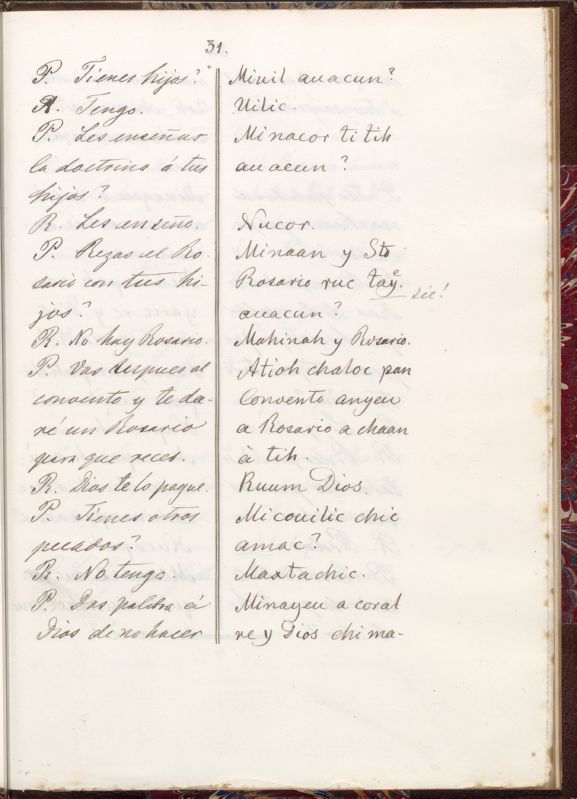 31.
P. Tienes hijos?
R. Tengo.
P. Les enseñas
la doctrina á tus
hijos?
R. Les enseño.
P. Rezas el Ro-
sario con tus hi-
jos?
R. No hay Rosario.
P. Vas despues al
convento y te da-
ré un Rosario
para que reces.
R. Dios te lo pague.
P. Tienes otros
pecados?
R. No tengo.
P. Das palabra á
Dios de no hacer
Minil auacun?
Uilic.
Minacor ti tih
auacun?
Nucor.
Minaan y Sto
Rosario ruc tay.
sic!
auacun?
Mahinah y Rosario.
Atioh chaloc pan
Convento anyeu
a Rosario a chaan
à tih.
Ruum Dios.
Micouilic chic
amac?
Maxtachic.
Minayeu a coral
re y Dios chi ma-